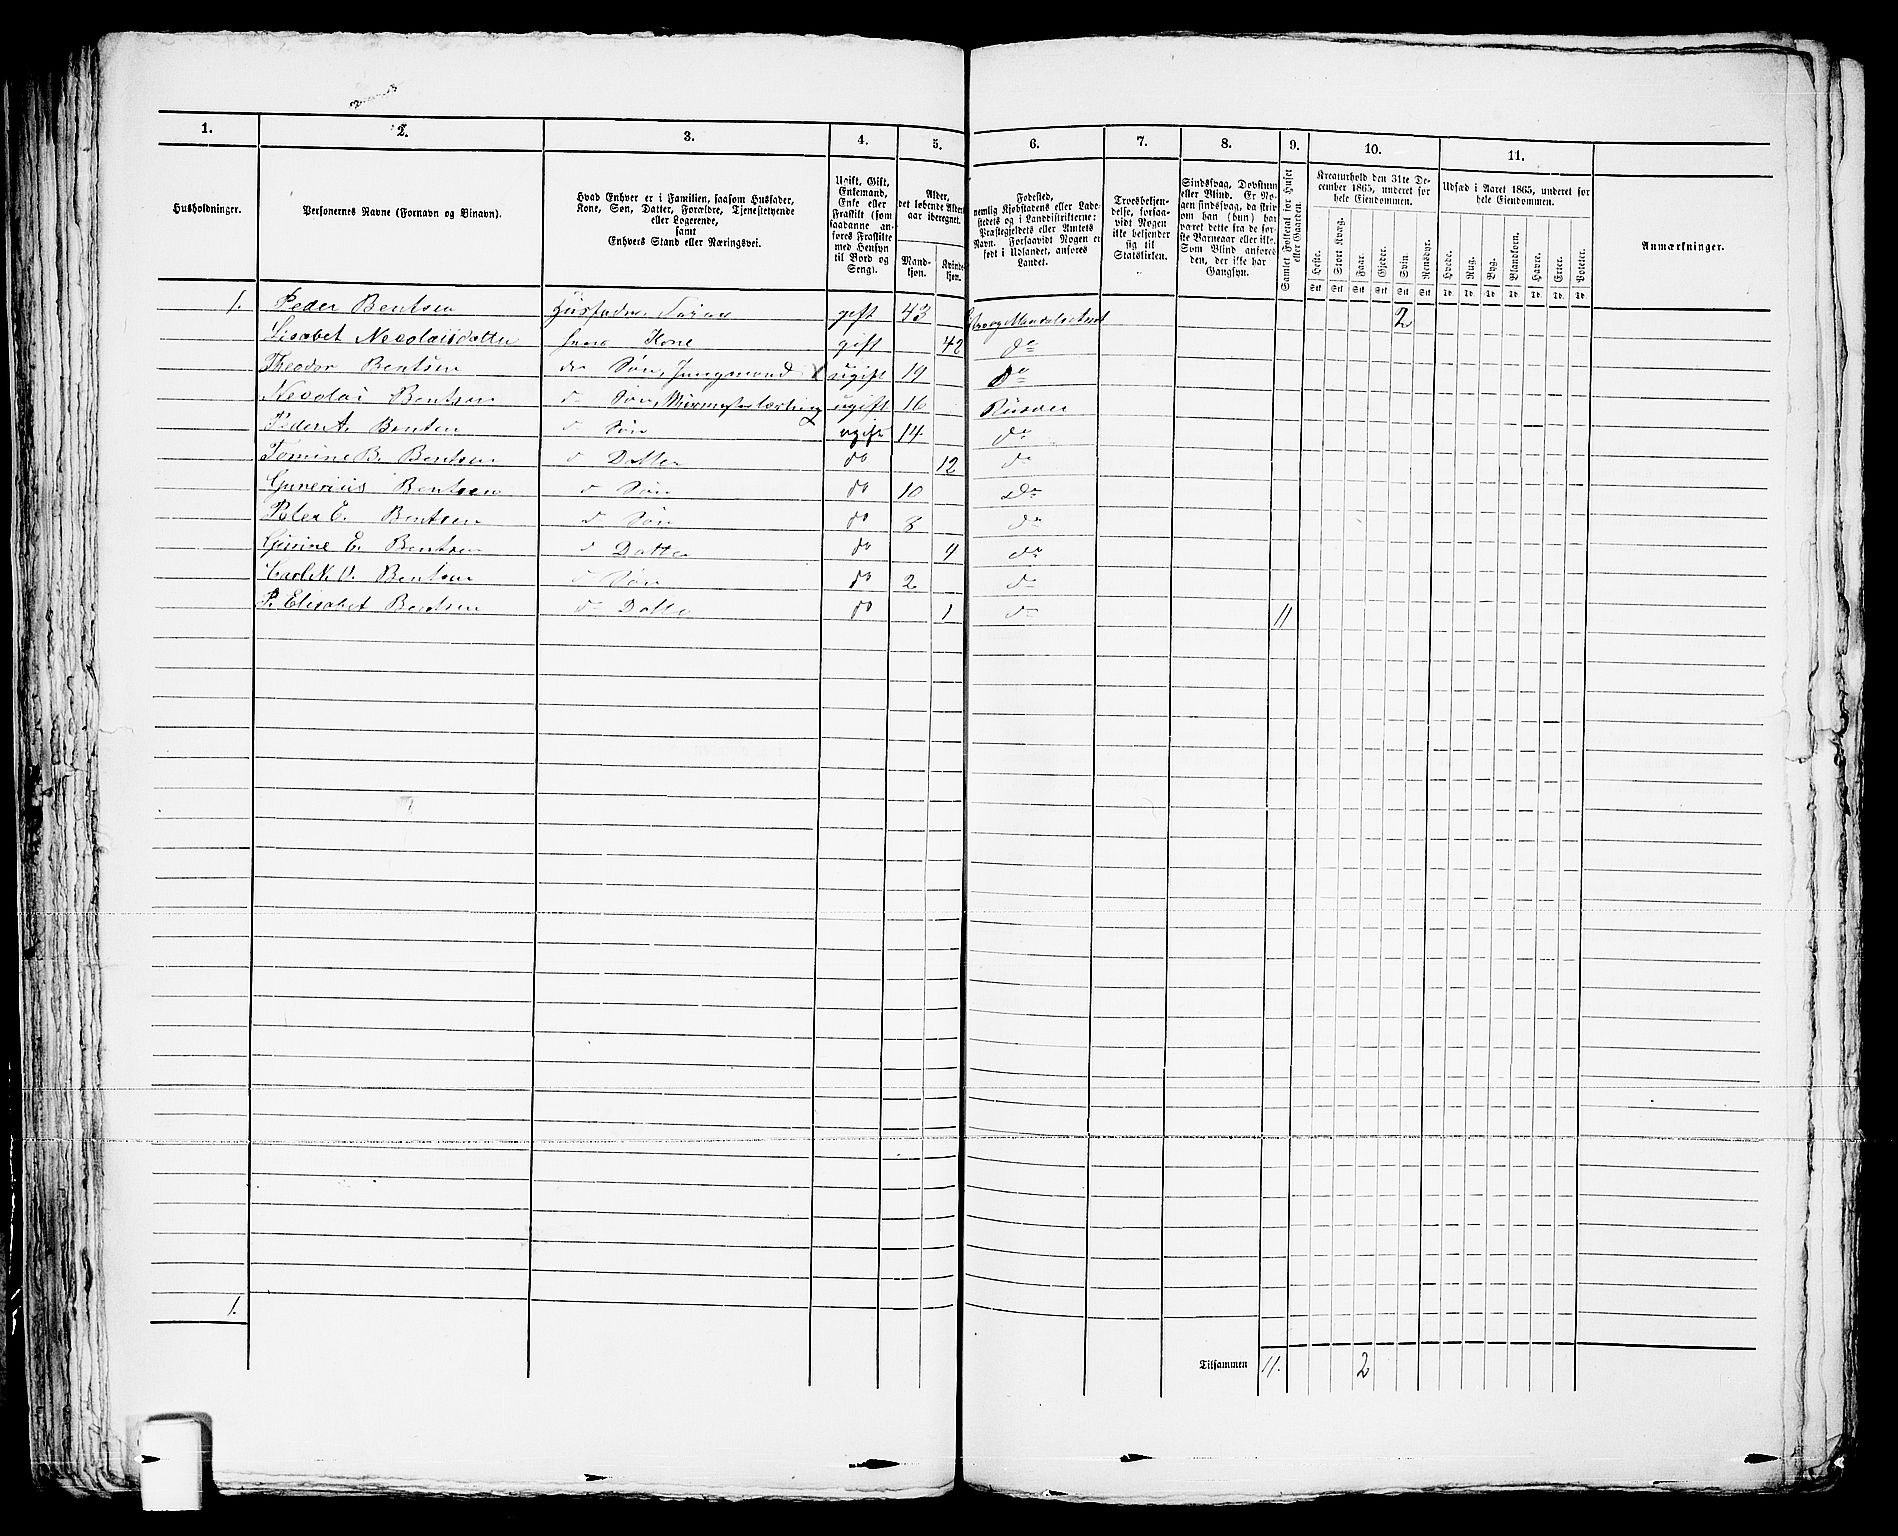 1. 2. 3. 4. 5. 6. 7. 8. 9. 10. 11.
Husholdninger.
Personernes Navne (Fornavn og Tilnavn).
Hvad Enhver er i Familien, saasom Husfader, Kone, Søn, Datter, Forældre, Tjenestetyende eller Logerende, samt Enhvers Stand eller Næringsvei.
Ugift, Gift, Enkemand, Enke eller Fraskilt (som saadanne anføres Fraskilte med Hensyn til Bord og Seng).
Alder, det løbende Alders-aar iberegnet.
Mand-kjøn. Kvinde-kjøn.
Fødested, nemlig Kjøbstadens eller Ladestedets og i Landdistrikterne: Præstegjeldets eller Amtets Navn. Forsaavidt Nogen er født i Udlandet, anføres Landet.
Troesbekjendelse, forsaavidt Nogen ikke bekjender sig til Statskirken.
Sindssvag, Døvstum eller Blind. Er Nogen sindssvag, da skrives om han (hun) har været dette fra de første Barneaar eller ikke. Som Blind anføres den, der ikke har Gangsyn.
Samlet Folketal for Huset eller Gaarden.
Kreaturhold den 31te December 1865, underet for hele Eiendommen.
Heste. Stort Kvæg. Faar. Gjeder. Svin. Rensdyr.
Udsæd i Aaret 1865, underet for hele Eiendommen.
Hvede. Rug. Byg. Blandkorn. Havre. Erter. Poteter.
Anmærkninger.
1. Peder Bentsen gift 43 2
Lisabet Kone gift 42 do
Theodor Bentsen Søn, Jungmand ugift 19 Do
Nicolai Bentsen Søn ugift 16 Risøer
Peder A. Bentsen Søn ugift 14 do
Tomine B. Bentsen Datter do 12 do
Gunerius Bentsen Søn do 10 do
Peter E. Bentsen Søn do 8 do
Gusine E. Bentsen Datter do 4 do
Carl N. O. Bentsen Søn do 2 do
P. Elisabet Bentsen Datter do 1 do 11
1.
Tilsammen 11. 2